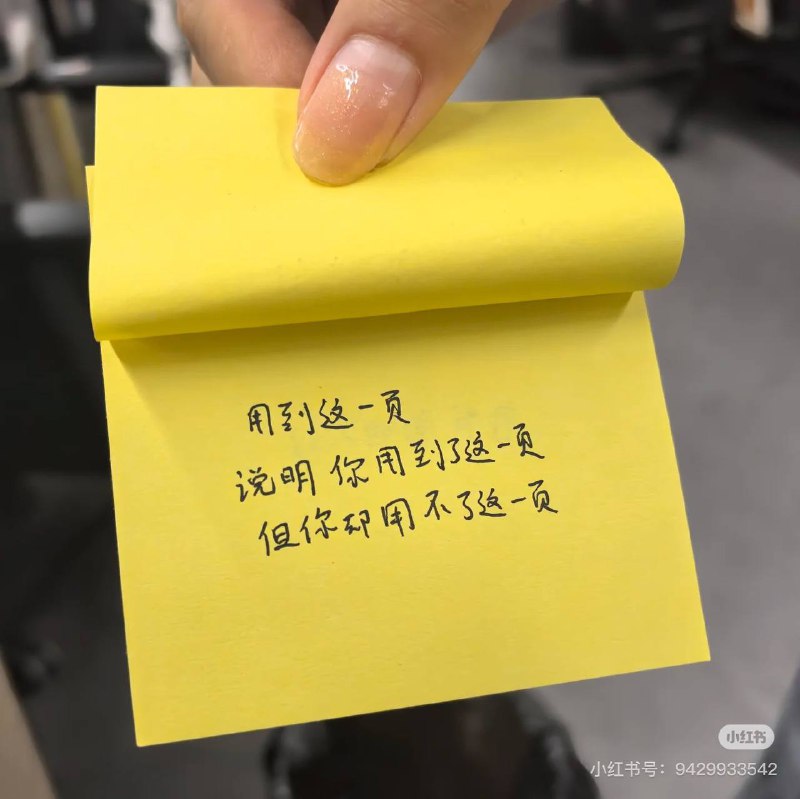 用到这一页
说明你用到了这一页
但你却用不了这一页
小红书
小红书号：9429933542